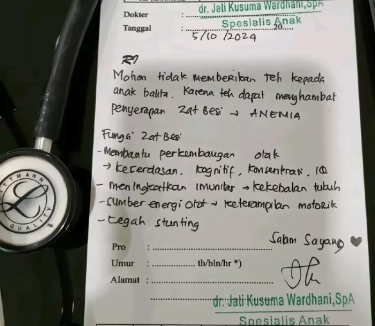 dr. Jati Kusuma Wardhani,SpA
Dokter :
Spesialis Anak
Tanggal : 20
5/10/2024
R/
Mohon tidak memberikan teh kepada
anak balita. Karena teh dapat menghambat
penyerapan Zat Besi → ANEMIA
Fungsi Zat Besi
- Membantu perkembangan otak
→ kecerdasan, kognitif, konsentrasi, IQ
- meningkatkan imunitas → kekebalan tubuh
- sumber energi otot → keterampilan motorik
- Cegah stunting
Salam Sayang ♥
Pro :
Umur : th/bln/hr *)
Alamat :
dr. Jati Kusuma Wardhani,SpA
Spesialis Anak
LITTMANN
QUALITY